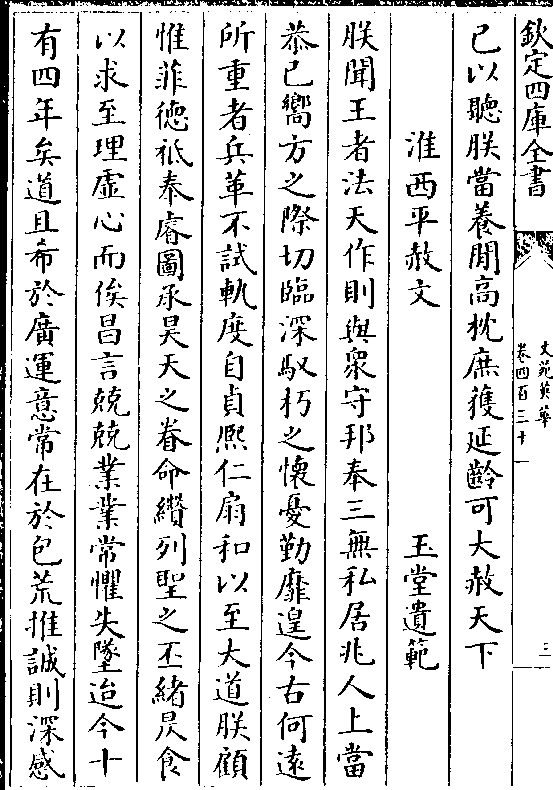 欽定四庫全書
文苑英華
卷四百三十
三
已以聽朕當養閒高枕庶獲延齡可大赦天下
淮西平赦文
玉堂遺範
朕聞王者法天作則與衆守邦奉三無私居兆人上當
恭已嚮方之際切臨深馭朽之懷憂勤靡遑今古何遠
所重者兵革不試軌度自貞熈仁扇和以至大道朕顧
惟菲徳祗奉睿圖承昊天之眷命纘列聖之丕緒昃食
以求至理虚心而俟昌言兢兢業業常懼失墜迨今十
有四年矣道且希於廣運意常在於包荒推誠則深感